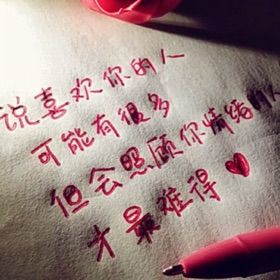 说喜欢你的人
可能有很多
但会照顾你情绪的人
才最难得